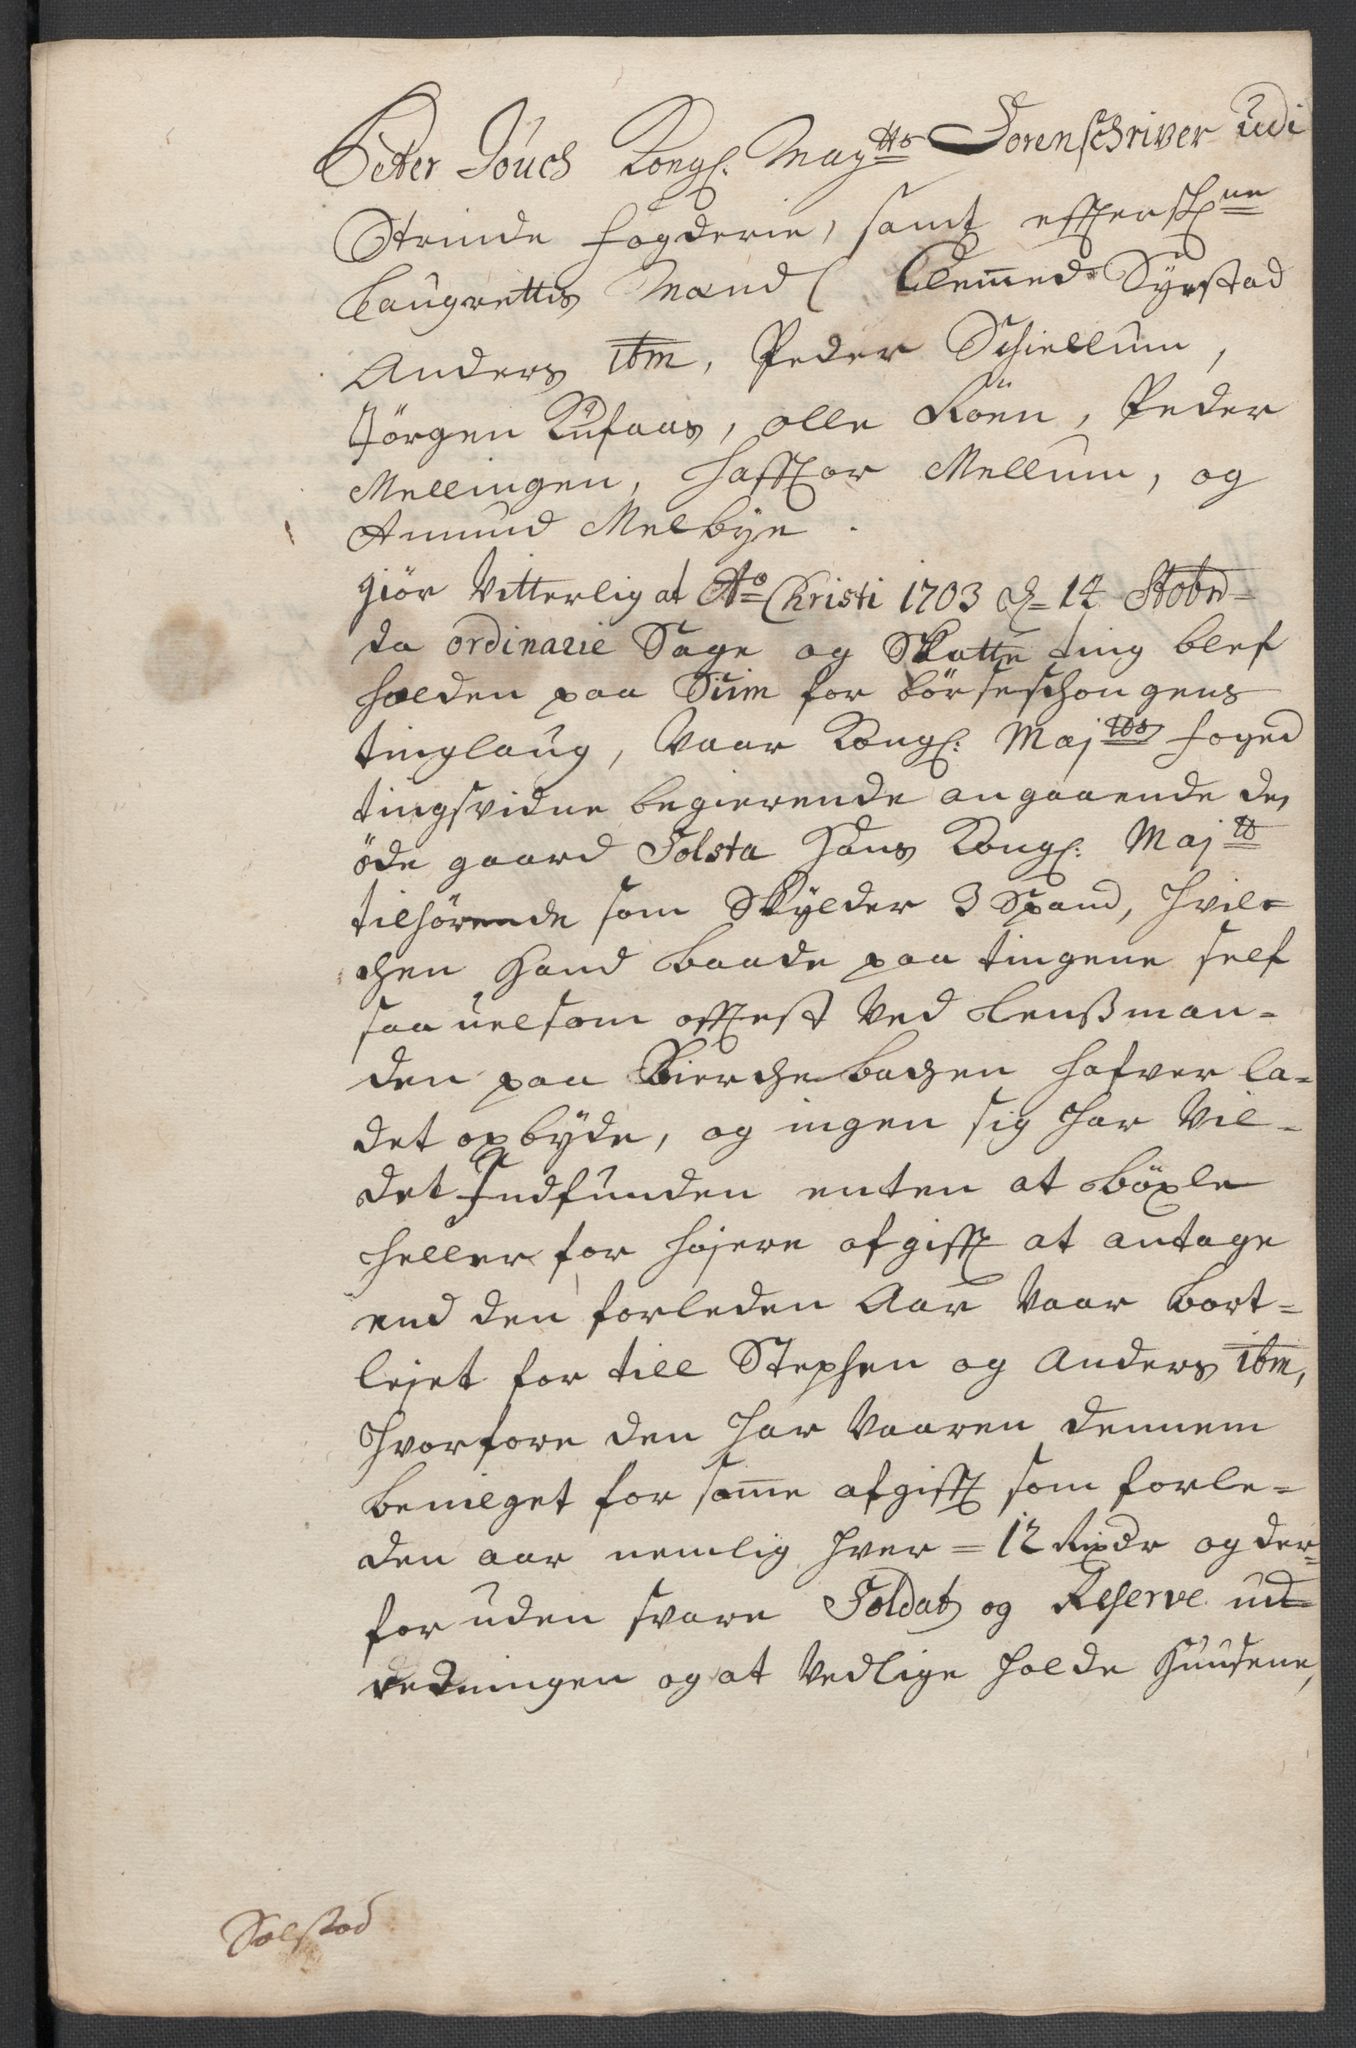 Peter Jouch Kongl. May^tts Sorenschriver udi
Strinde fogderie, samt effterschr^ne
Laugrettis Mænd Clemmed Syrstad
Anders ibm, Peder Schiellum,
Jörgen Kufaas, olle Röen, Peder
Mellingen, Hafftor Mellum, og
Amund Melbÿe.
giör Vitterlig at A^o Christi 1703 d. 14
da ordinarie Sage og Skatte ting blef
holden paa Suim for börseschongens
tinglaug, Vaar Kongl: Maj^tts foged
tingsvidne begierende angaaende de,
öde gaard Solsta Hans Kongl: Maj^tt
tilhörende som Skÿlder 3 Spand, hvil-
chen Hand baade paa tingene self
saauelsom offtest Ved Lenßman-
den paa Kierchebachen hafver la-
det opbÿde, og ingen sig har Vil-
det Indfunden enten at böxle
heller for höjere afgifft at antage
end den forleden Aar Vaar bort-
lejet for till Stephen og Anders ibm,
hvorfore den har Vaaren dennem
bevilget for samme afgifft som forle-
den aar nemlig hver = 12 Rixdr og der-
foruden svare Soldat og Reserve ud-
redningen og at Vedlige holde Huusene,
Solstad